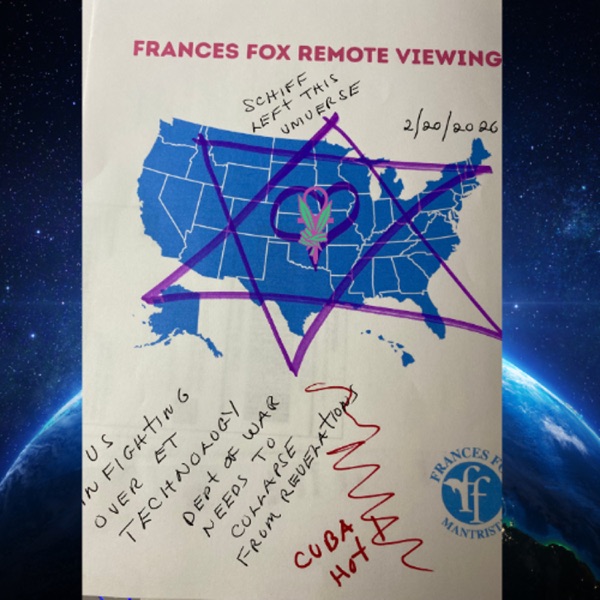 FRANCES FOX REMOTE VIEWING
SCHIFF
LEFT THIS
UNIVERSE
2/20/2026
US
INFIGHTING
OVER ET
TECHNOLOGY
DEPT OF WAR
NEEDS TO
COLLAPSE
FROM REVELATIONS
CUBA
HOT
FRANCES FO
ff
MANTRIST